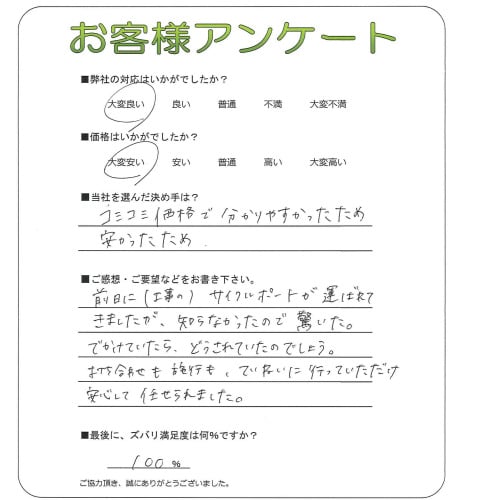 お客様アンケート
■弊社の対応はいかがでしたか？
大変良い 良い 普通 不満 大変不満
■価格はいかがでしたか？
大変安い 安い 普通 高い 大変高い
■当社を選んだ決め手は？
コミコミ価格で分かりやすかったため
安かったため.
■ご感想・ご要望などをお書き下さい。
前日に(工事の) サイクルポートが運ばれて
きましたが、知らなかったので驚いた。
でかけていたら、どうされていたのでしょう。
打ち合わせも施行も、ていねいに行っていただけ
安心して任せられました。
■最後に、ズバリ満足度は何%ですか？
100 %
ご協力頂き、誠にありがとうございました。